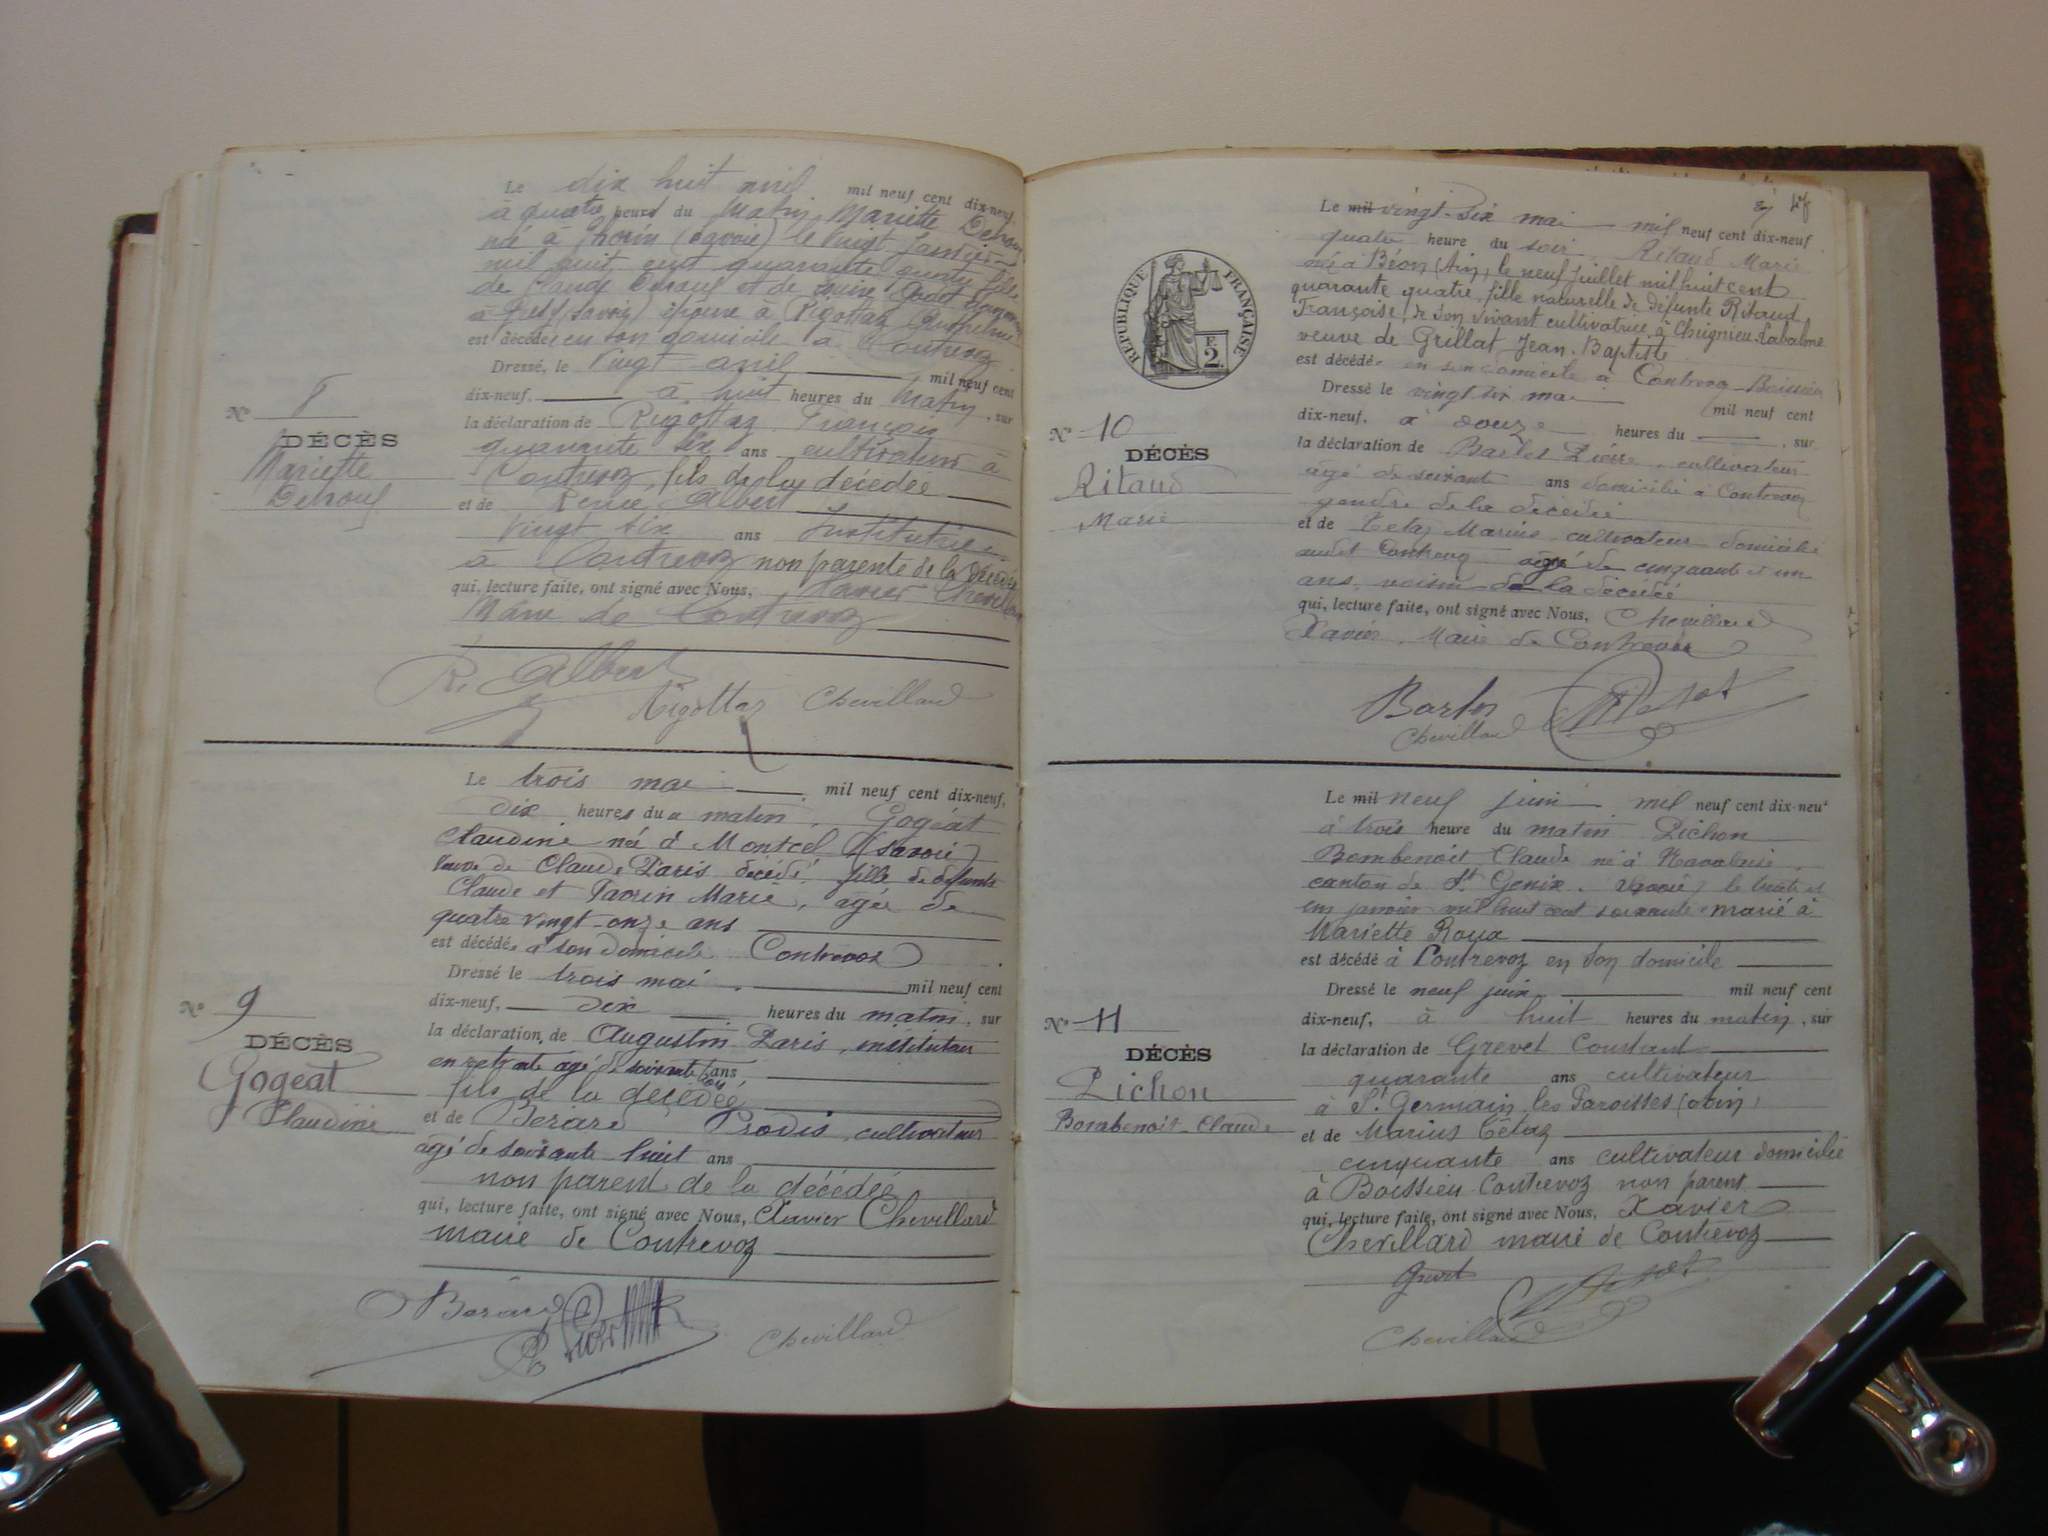 Le dix huit avril mil neuf cent dix-neuf,
à quatre heures du Matin Mariette
né à (Savoie) le vingt janvier
mil huit cent quarante fille
de Claude et de
(Savoie) épouse à Rigottaz
est décédée en son domicile à Contrevoz
Dressé, le vingt avril mil neuf cent
dix-neuf, à huit heures du Matin, sur
la déclaration de Rigottaz François
quarante six ans cultivateur à
Contrevoz, fils de la décédée
et de Renée Albert
vingt six ans Institutrice
à Contrevoz non parente de la décédée
qui, lecture faite, ont signé avec Nous, Xavier Chevillard
Maire de Contrevoz
R. Albert
Rigottaz Chevillard
No 8
DÉCÈS
Mariette
Le trois mai mil neuf cent dix-neuf,
dix heures du matin, Gogeat
Claudine née à Montcel (Savoie)
veuve de Claude Paris décédé fille de défunts
Claude et Marie, agée de
quatre vingt-onze ans
est décédée à son domicile Contrevoz
Dressé le trois mai mil neuf cent
dix-neuf, dix heures du matin, sur
la déclaration, de Augustin Paris, instituteur
en retraite agé de soixante ans
fils de la décédée
et de Berard Prodis, cultivateur
agé de soixante huit ans
non parent de la décédée
qui, lecture faite, ont signé avec Nous, Xavier Chevillard
maire de Contrevoz
Berard
Chevillard
No 9
DÉCÈS
Gogeat
Claudine
47
RÉPUBLIQUE FRANÇAISE
F.
2.
Le mil vingt-six mai mil neuf cent dix-neuf
quatre heure du soir Ritaud Marie
née à Béon (Ain) le neuf juillet mil huit cent
quarante quatre, fille naturelle de défunte Ritaud
Françoise, de son vivant cultivatrice à Cheignieu Labalme
veuve de Grillat Jean-Baptiste
est décédée en son domicile à Contrevoz-Boissieu
Dressé le vingt six mai mil neuf cent
dix-neuf, à douze heures du , sur
la déclaration de Pierre, cultivateur
agé de soixante ans domicilié à Contrevoz
gendre de la décédée
et de Tétaz Marius cultivateur domicilié
audit Contrevoz agé de cinquante et un
ans, voisin de la décédée
qui, lecture faite, ont signé avec Nous, Chevillard
Xavier, Maire de Contrevoz
Chevillard
No 10
DÉCÈS
Ritaud
Marie
Le mil neuf juin mil neuf cent dix-neuf
à trois heure du matin Pichon
Bombenoit Claude né à
canton de St Genix (Savoie) le trente et
un janvier mil huit cent soixante marié à
Mariette Roux
est décédé à Contrevoz en son domicile
Dressé le neuf juin mil neuf cent
dix-neuf, à huit heures du matin, sur
la déclaration de Grevet Constant
quarante ans cultivateur
à St Germain les Paroisses (Ain)
et de Marius Tétaz
cinquante ans cultivateur domicilié
à Boissieu Contrevoz non parent
qui, lecture faite, ont signé avec Nous, Xavier
Chevillard maire de Contrevoz
Grevet
Chevillard
No 11
DÉCÈS
Pichon
Bombenoit Claude